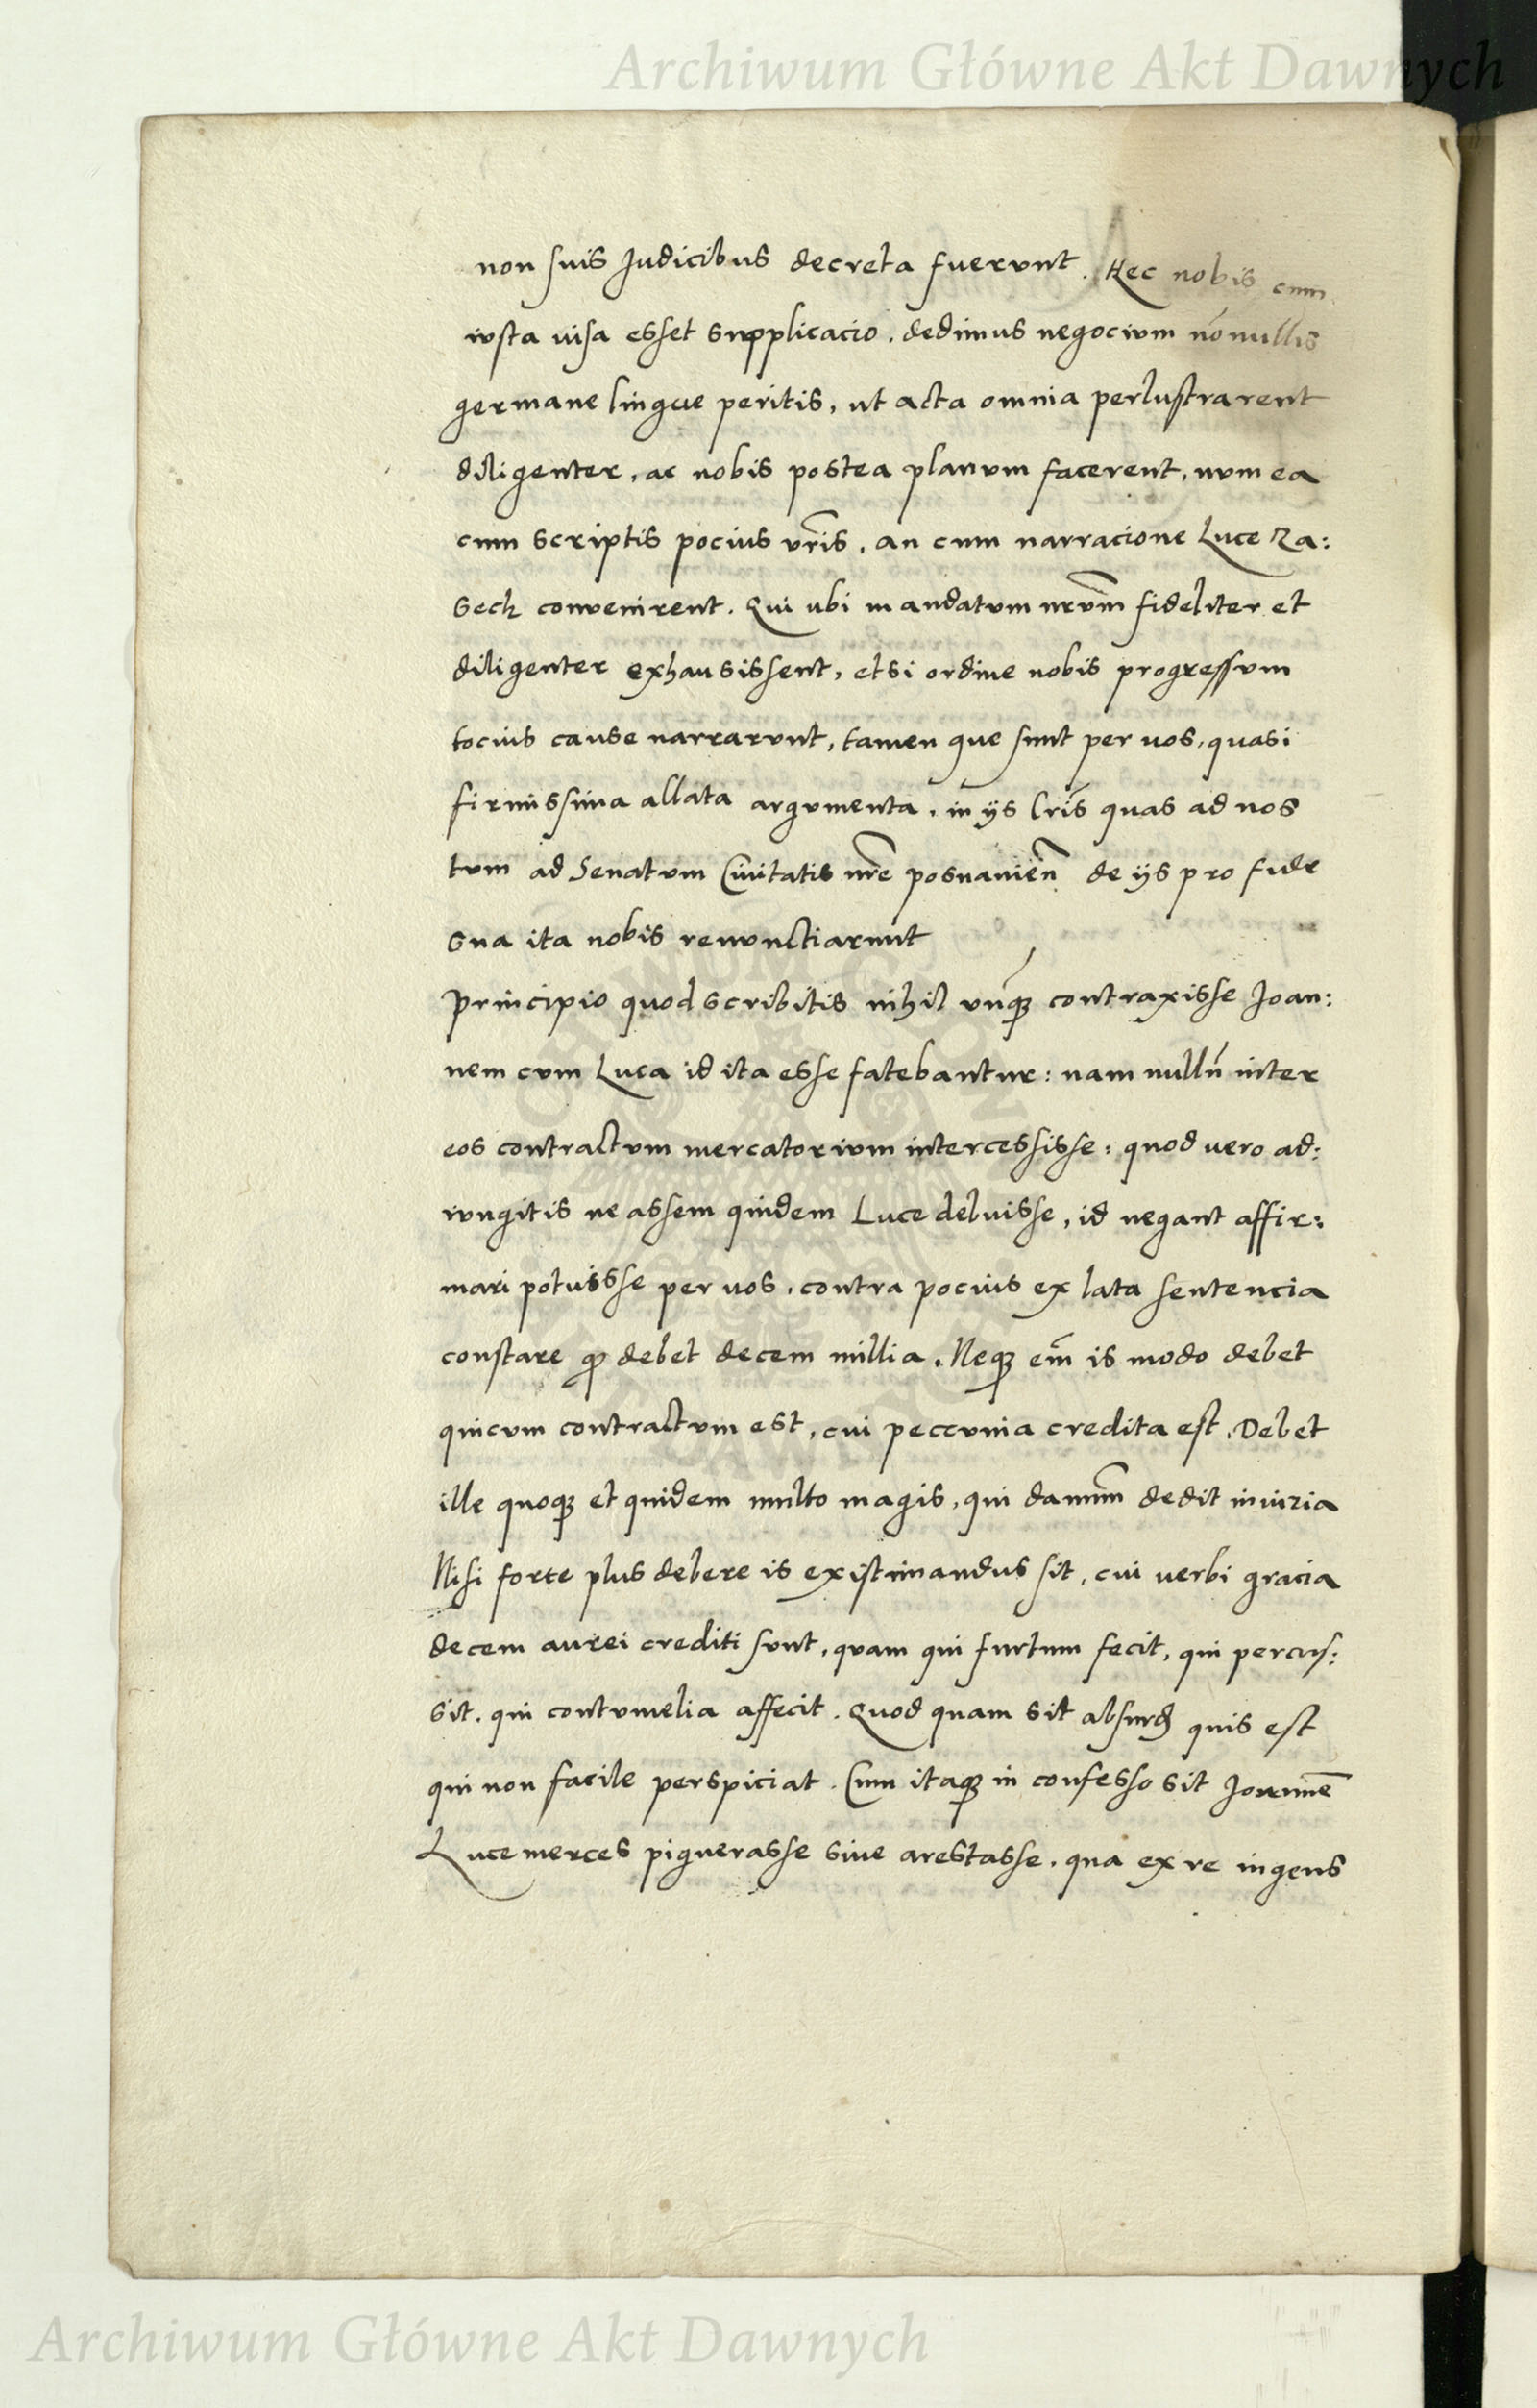 Archiwum Główne Akt Dawnych
non suis Judicibus decreta fuerunt. Hec nobis cum
iusta uisa esset supplicacio, dedimus negocium nōnullis
germane lingue peritis, ut acta omnia perlustrarent
diligenter, ac nobis postea planum facerent, num ea
cum scriptis pocius vr̃is, an cum narracione Luce Ra:
seck conuenirent. Qui ubi mandatum nrũm fideliter et
diligenter exhausissent, etsi ordine nobis progressum
tocius cause narrarunt, tamen que sunt per uos, quasi
firmissima allata argumenta, in ijs lr̃is quas ad nos
tum ad Senatum Ciuitatis nr̃e posnanieñ de ijs pro fide
sua ita nobis renunctiarunt
Principio quod scribitis nihil unq̃ȝ contraxisse Joan:
nem cum Luca id ita esse fatebantur: nam nullũ inter
eos contractum mercatorium intercessisse: quod uero ad:
iungitis ne assem quidem Luce debuisse, id negant affir:
mari potuisse per uos, contra pocius ex lata sentencia
constare ꝙ debet decem millia. Neqȝ em̃ is modo debet
quicum contractum est, cui peccunia credita est. Debet
ille quoqȝ et quidem multo magis, qui damnũm dedit iniuria
Nisi forte plus debere is existimandus sit, cui uerbi gracia
decem aurei crediti sunt, quam qui furtum fecit, qui percus:
sit, qui contumelia affecit. Quod quam sit absurdȝ quis est
qui non facile perspiciat. Cum itaqȝ in confesso sit Joannẽ
Luce merces pignerasse siue arestasse, qua ex re ingens
Archiwum Główne Akt Dawnych